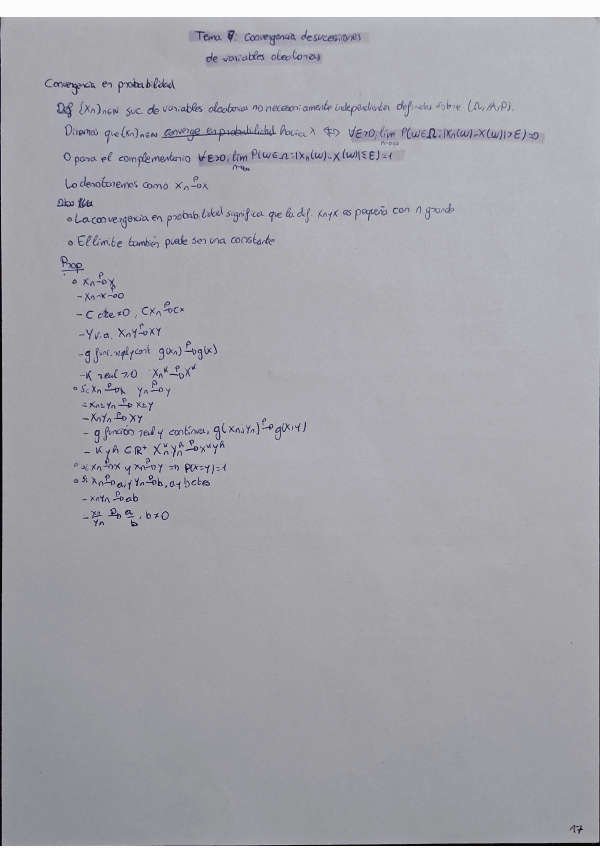 Tema 7: Convergencia de sucesiones
de variables aleatorias
Convergencia en probabilidad
Def {Xn}n∈N suc. de variables aleatorias no necesariamente independientes definidas sobre (Ω, A, P).
Diremos que (Xn)n∈N converge en probabilidad hacia X ⇔ ∀ε>0, lim n→∞ P(ω∈Ω: |Xn(ω)-X(ω)|>ε)=0
O para el complementario ∀ε>0, lim n→∞ P(ω∈Ω: |Xn(ω)-X(ω)|≤ε)=1
Lo denotaremos como Xn →P X
• La convergencia en probabilidad significa que la dif. Xn y X es pequeña con n grande
• El límite también puede ser una constante
Prop
• Xn →P X
- Xn-X →P 0
- C cte ≠0, CXn →P CX
- Y v.a. XnY →P XY
- g func. real y cont. g(Xn) →P g(X)
- K real >0 Xn^K →P X^K
• Si Xn →P X Yn →P Y
- Xn±Yn →P X±Y
- XnYn →P XY
- g función real y continua, g(Xn,Yn) →P g(X,Y)
- K y h ∈ R+ Xn^K Yn^h →P X^K Y^h
• si Xn →P X y Xn →P Y ⇒ P(X=Y)=1
• Si Xn →P a, y Yn →P b, a y b ctes
- XnYn →P ab
- Xn/Yn →P a/b, b≠0
17